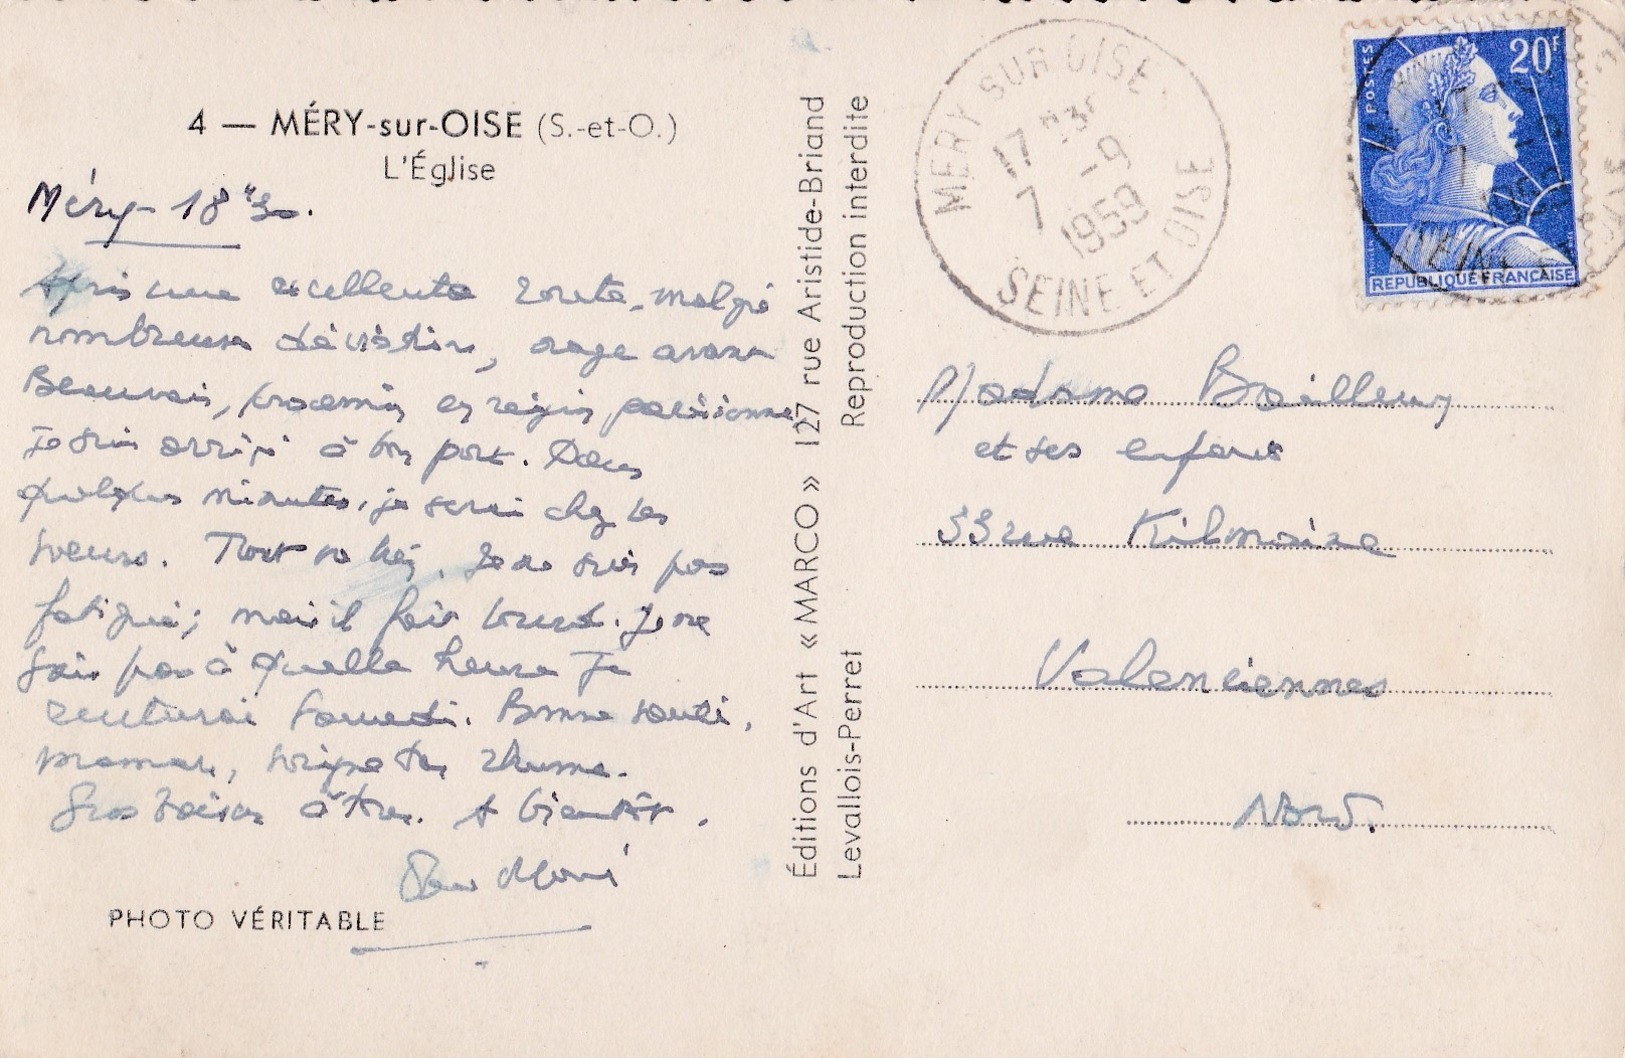 4 — MÉRY-sur-OISE (S.-et-O.)
L'Église
Méry - 18h30.
Après une excellente route, malgré
nombreuses déviations, orage avant
Beauvais, en région parisienne,
je suis arrivé à bon port. Dans
quelques minutes, je serai chez les
soeurs. Tout va bien. Je ne suis pas
fatigué; mais il fait lourd. Je ne
sais pas à quelle heure je
rentrerai samedi. Bonne santé,
maman, soigne ton rhume.
Gros baisers à tous. A bientôt.
PHOTO VÉRITABLE
Éditions d'Art « MARCO » 127 rue Aristide-Briand
Levallois-Perret Reproduction interdite
MERY SUR OISE
17 H
7 -9
1959
SEINE ET OISE
POSTES
20F
REPUBLIQUE FRANÇAISE
Madame
et ses enfants
33 rue Kilmaine
Valenciennes
Nord.